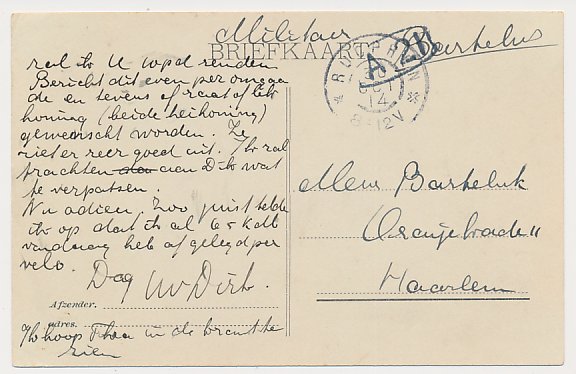 Militair
BRIEFKAART
Bartelus
RUCPHEN
OCT
14
8-12V
A 21
zal ik U wpd zenden
Bericht dit even per omgaande
de en tevens of raat of
honing (beide honing)
gewenscht worden. Ze
ziet er zeer goed uit. Ik zal
trachten aan D ik wat
te verpatsen.
Nu adieu, Zoo juist telde
ik op dat ik al 65 kilo
vandaag heb afgelegd per
velo.
Dag Uw Dirk.
Afzender.
adres.
Ik hoop in de krant te
zien
Mevr Bartelink
Oranjekade 11
Haarlem